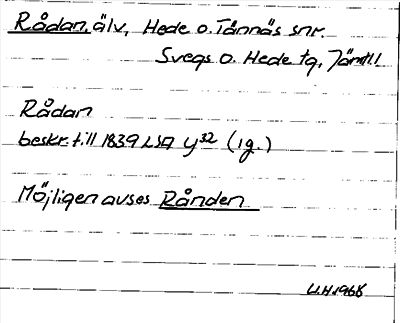 Rådan, älv, Hede o. Tännäs snr.
Svegs o. Hede tg, Jämtl.l
Rådan
beskr. till 1839 LSA y32 (1g.)
Möjligen avses Rånden
U.H.1968